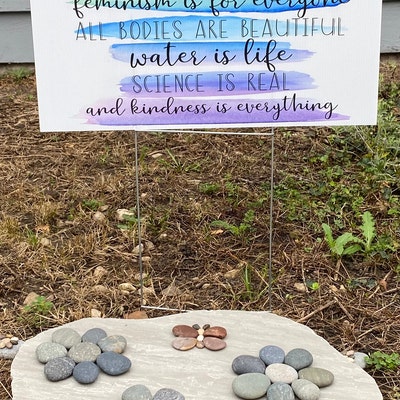 feminism is for everyone
ALL BODIES ARE BEAUTIFUL
water is life
SCIENCE IS REAL
and kindness is everything